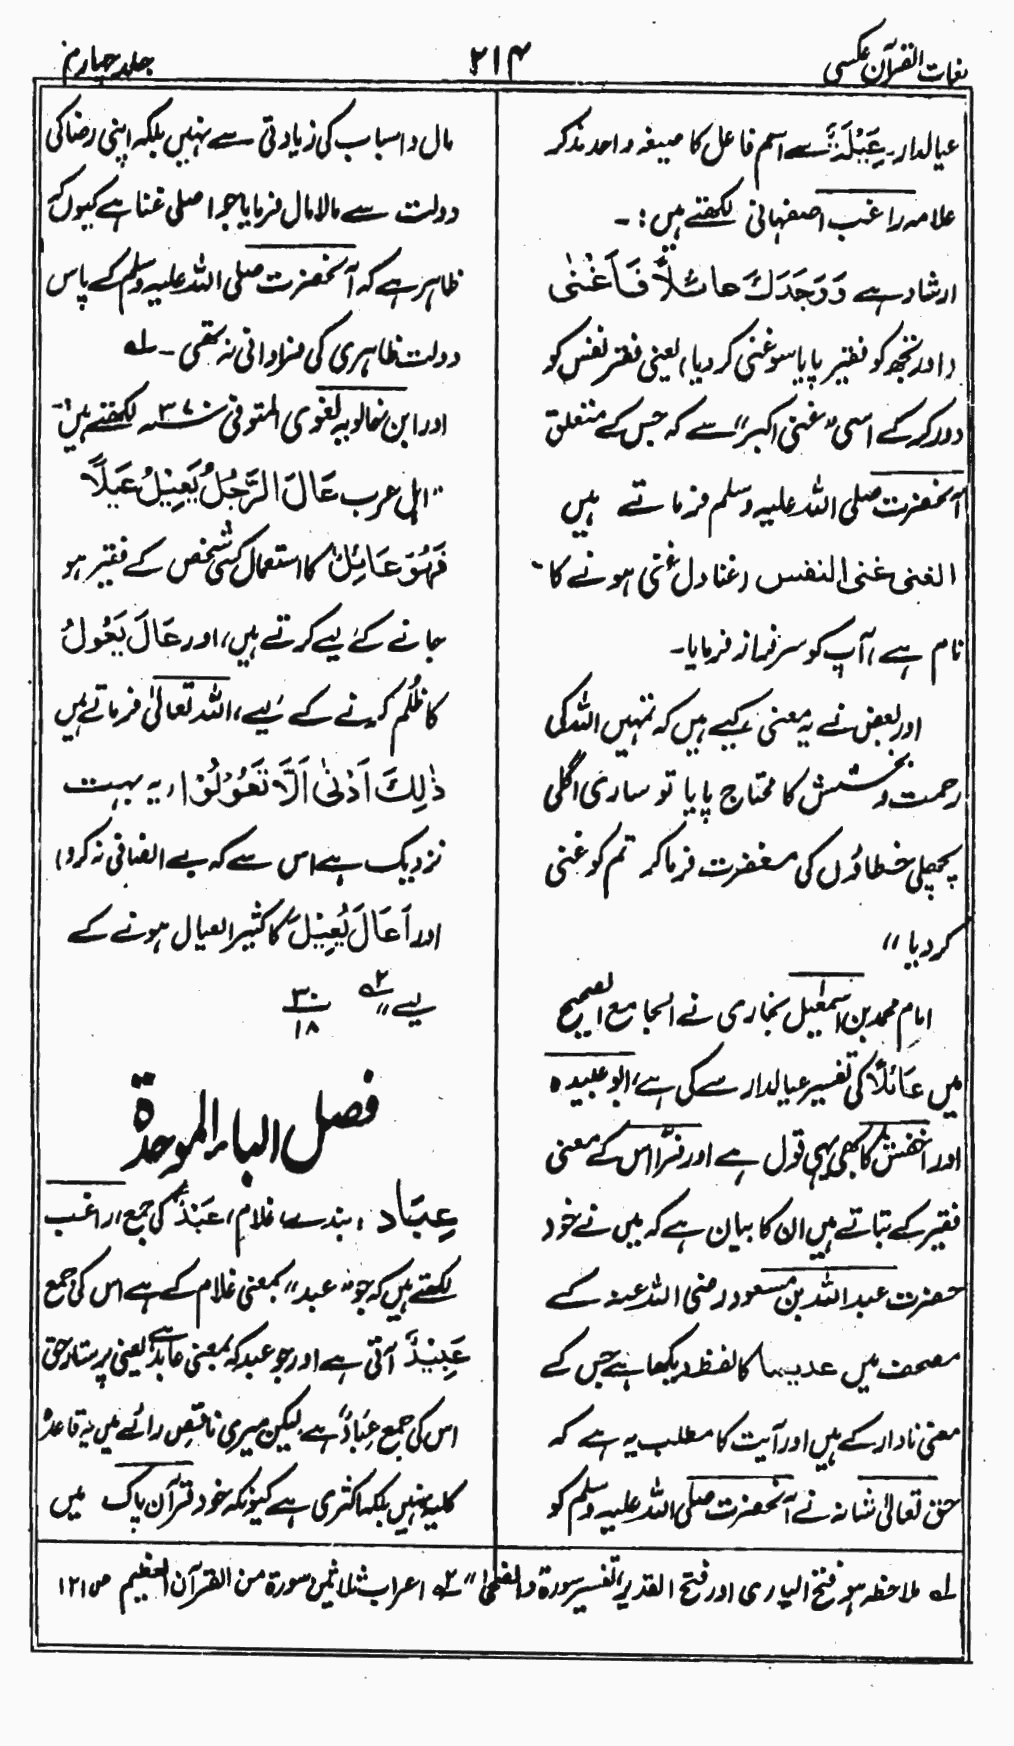 لغات القرآن عکسی
۲۱۴
جلد چہارم
عیالدار۔ عَیْلَۃٌ سے اسم فاعل کا صیغہ واحد مذکر
علامہ راغب اصفہانی لکھتے ہیں :۔
ارشاد ہے وَوَجَدَكَ عَائِلًا فَاَغْنٰى
(اور تجھ کو فقیر پایا سو غنی کر دیا) یعنی فقر نفس کو
دور کرکے اسی "غنی اکبر" سے کہ جس کے متعلق
آنحضرت صلی اللہ علیہ وسلم فرماتے ہیں
الغنی غنی النفس (غنا دل غنی ہونے کا
نام ہے) آپ کو سرفراز فرمایا۔
اور بعض نے یہ معنی کیے ہیں کہ تمہیں اللہ کی
رحمت و بخشش کا محتاج پایا تو ساری اگلی
پچھلی خطاؤں کی مغفرت فرما کر تم کو غنی
کر دیا "
امام محمد بن اسمٰعیل بخاری نے الجامع الصحیح
میں عَائِلًا کی تفسیر عیالدار سے کی ہے، ابو عبیدہ
اور اخفش کا بھی یہی قول ہے اور فرّا اس کے معنی
فقیر کے بتاتے ہیں ان کا بیان ہے کہ میں نے خود
حضرت عبد اللہ بن مسعود رضی اللہ عنہ کے
مصحف میں عدیما کا لفظ دیکھا ہے جس کے
معنی نادار کے ہیں اور آیت کا مطلب یہ ہے کہ
حق تعالیٰ شانہ نے آنحضرت صلی اللہ علیہ وسلم کو
مال و اسباب کی زیادتی سے نہیں بلکہ اپنی رضا کی
دولت سے مالا مال فرمایا جو اصلی غنا ہے کیوں کہ
ظاہر ہے کہ آنحضرت صلی اللہ علیہ وسلم کے پاس
دولت ظاہری کی فراوانی نہ تھی ۔ ؎۱
اور ابن خالویہ لغوی المتوفی ۳۷۰ھ لکھتے ہیں:۔
"اہل عرب عَالَ الرَّجُلُ یَعِیْلُ عَیْلًا
فَھُوَ عَائِلٌ کا استعمال کسی شخص کے فقیر ہو
جانے کے لیے کرتے ہیں، اور عَالَ یَعُوْلُ
کا ظلم کرنے کے لیے، اللہ تعالیٰ فرماتے ہیں
ذٰلِكَ اَدْنٰى اَلَّا تَعُوْلُوْا (یہ بہت
نزدیک ہے اس سے کہ بے انصافی نہ کرو)
اور اَعَالَ یُعِیْلُ کا کثیر العیال ہونے کے
لیے" ؎۲ ۳۰/۱۸
فصل الباء الموحدۃ
عِبَاد ؛ بندے، غلام، عَبْدٌ کی جمع، راغب
لکھتے ہیں کہ جو "عبد" بمعنی غلام کے ہے اس کی جمع
عَبِیْدٌ آتی ہے اور جو عبد کہ بمعنی عابد ہے یعنی پرستار حق
اس کی جمع عِبَادٌ ہے لیکن میری ناقص رائے میں یہ قاعدہ
کلیہ نہیں بلکہ اکثری ہے کیونکہ خود قرآن پاک میں
؎۱ ملاحظہ ہو فتح الباری اور فتح القدیر، تفسیر سورۃ والضحٰی" ؎۲ اعراب ثلاثین سورۃ من القرآن العظیم ص ۱۲۱